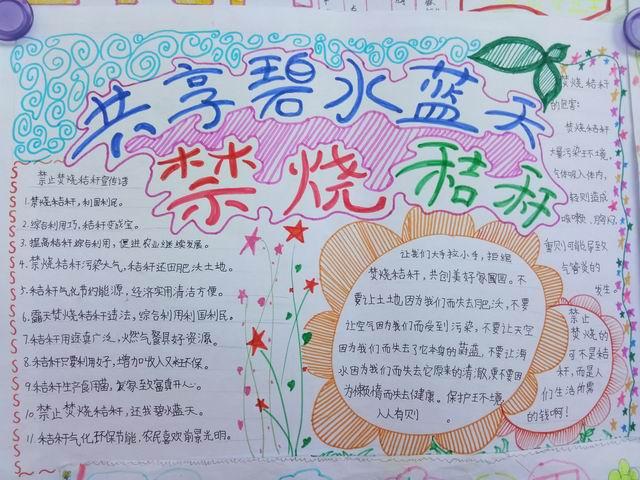 共享碧水蓝天
禁烧秸秆
禁止焚烧秸秆宣传语
1.焚烧秸秆,利国利民。
2.综合利用巧,秸秆变成宝。
3.提高秸秆综合利用,促进农业继续发展。
4.焚烧秸秆污染大气,秸秆还田肥沃土地。
5.秸秆气化节约能源,经济实用清洁方便。
6.露天焚烧秸秆违法,综合利用利国利民。
7.秸秆用途真广泛,火燃气餐具好资源。
8.秸秆只要利用好,增加收入又环保。
9.秸秆生产食用菌,发家致富喜开心。
10.禁止焚烧秸秆,还我碧水蓝天。
11.秸秆气化环保节能,农民喜欢前景光明。
让我们大手拉小手,拒绝
焚烧秸秆,共创美好家园。不
要让土地因为我们而失去肥沃,不要
让空气因为我们而受到污染,不要让天空
因为我们而失去了它本身的蔚蓝,不要让海
水因为我们而失去它原来的清澈,更不要因
为懒惰而失去健康。保护环境,
人人有责!
焚烧秸秆
的危害:
焚烧秸秆
大量污染环境,
气体吸入体内,
轻则造成
咳嗽、胸闷
重则可能导致
气管炎的
发生。
禁止
焚烧的
可不是秸
秆,而是人
们生活所需
的钱啊!